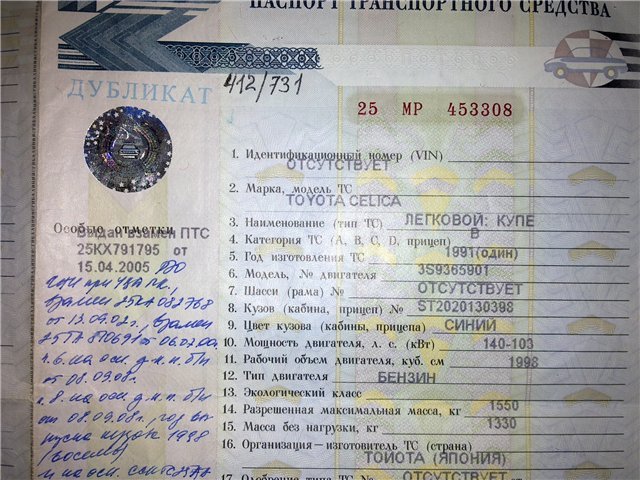 ПАСПОРТ ТРАНСПОРТНОГО СРЕДСТВА
ДУБЛИКАТ
412/731
25 МР 453308
1. Идентификационный номер (VIN)
ОТСУТСТВУЕТ
2. Марка, модель ТС
TOYOTA CELICA
3. Наименование (тип ТС) ЛЕГКОВОЙ: КУПЕ
4. Категория ТС (А, В, С, D, прицеп) В
5. Год изготовления ТС 1991(один)
6. Модель, № двигателя 3S9365901
7. Шасси (рама) № ОТСУТСТВУЕТ
8. Кузов (кабина, прицеп) № ST2020130398
9. Цвет кузова (кабины, прицепа) СИНИЙ
10. Мощность двигателя, л. с. (кВт) 140-103
11. Рабочий объем двигателя, куб. см 1998
12. Тип двигателя БЕНЗИН
13. Экологический класс
14. Разрешенная максимальная масса, кг 1550
15. Масса без нагрузки, кг 1330
16. Организация — изготовитель ТС (страна)
ТОЙОТА (ЯПОНИЯ)
17. Одобрение типа ТС № ОТСУТСТВУЕТ от
Особые отметки
Выдан взамен ПТС
25КХ791795 от
15.04.2005
взамен 25ТА 082768
от 13.09.02г., взамен
от 06.02.
п.6. на осн.
от 08.09.08г.
п.8. на осн.
от 08.09.08г., год вы
пуска 1998
(восемь)